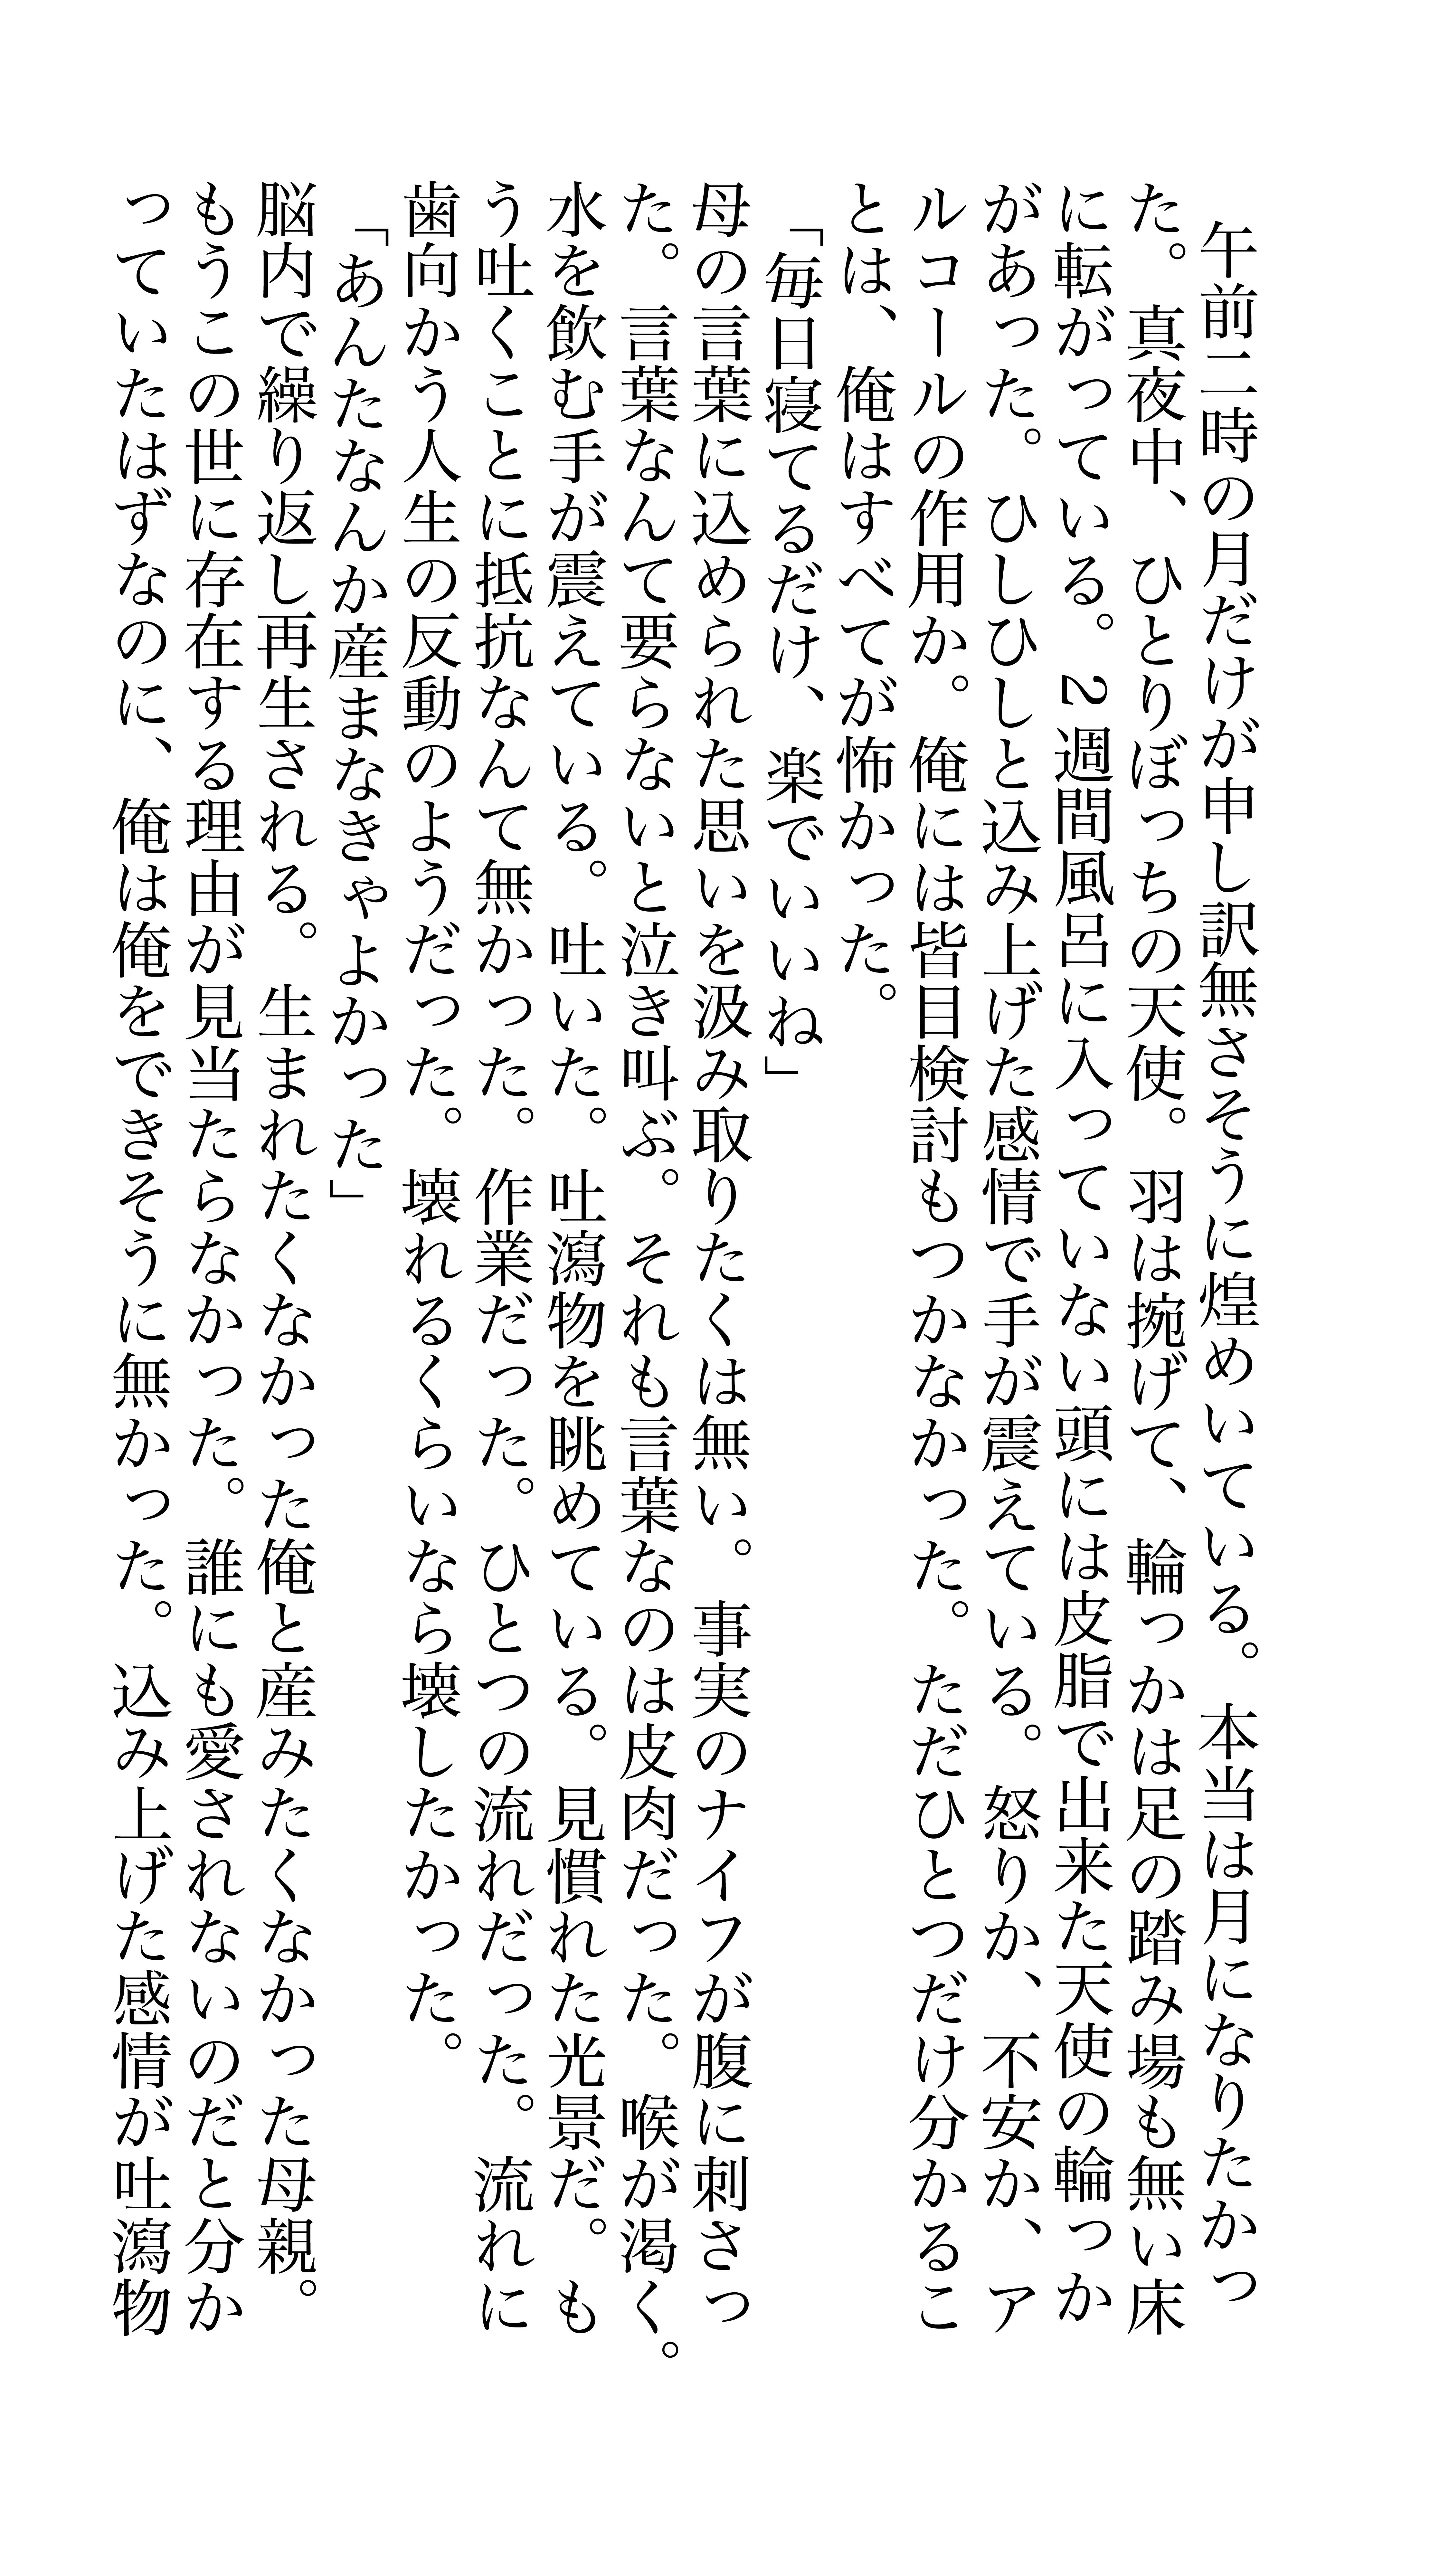 午前二時の月だけが申し訳無さそうに煌めいている。本当は月になりたかっ
た。真夜中、ひとりぼっちの天使。羽は捥げて、輪っかは足の踏み場も無い床
に転がっている。2週間風呂に入っていない頭には皮脂で出来た天使の輪っか
があった。ひしひしと込み上げた感情で手が震えている。怒りか、不安か、ア
ルコールの作用か。俺には皆目検討もつかなかった。ただひとつだけ分かるこ
とは、俺はすべてが怖かった。
「毎日寝てるだけ、楽でいいね」
母の言葉に込められた思いを汲み取りたくは無い。事実のナイフが腹に刺さっ
た。言葉なんて要らないと泣き叫ぶ。それも言葉なのは皮肉だった。喉が渇く。
水を飲む手が震えている。吐いた。吐瀉物を眺めている。見慣れた光景だ。も
う吐くことに抵抗なんて無かった。作業だった。ひとつの流れだった。流れに
歯向かう人生の反動のようだった。壊れるくらいなら壊したかった。
「あんたなんか産まなきゃよかった」
脳内で繰り返し再生される。生まれたくなかった俺と産みたくなかった母親。
もうこの世に存在する理由が見当たらなかった。誰にも愛されないのだと分か
っていたはずなのに、俺は俺をできそうに無かった。込み上げた感情が吐瀉物